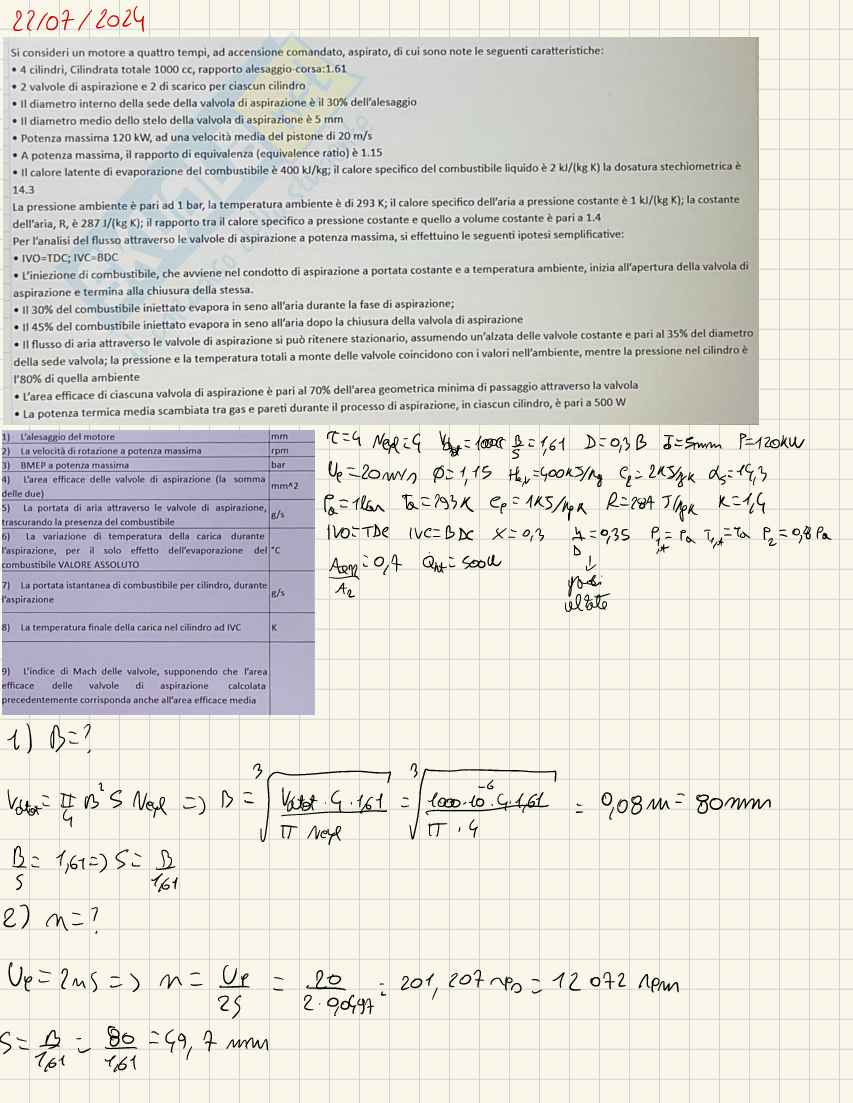 22/07/2024
Si consideri un motore a quattro tempi, ad accensione comandato, aspirato, di cui sono note le seguenti caratteristiche:
• 4 cilindri, Cilindrata totale 1000 cc, rapporto alesaggio-corsa:1.61
• 2 valvole di aspirazione e 2 di scarico per ciascun cilindro
• Il diametro interno della sede della valvola di aspirazione è il 30% dell'alesaggio
• Il diametro medio dello stelo della valvola di aspirazione è 5 mm
• Potenza massima 120 kW, ad una velocità media del pistone di 20 m/s
• A potenza massima, il rapporto di equivalenza (equivalence ratio) è 1.15
• Il calore latente di evaporazione del combustibile è 400 kJ/kg; il calore specifico del combustibile liquido è 2 kJ/(kg K) la dosatura stechiometrica è
14.3
La pressione ambiente è pari ad 1 bar, la temperatura ambiente è di 293 K; il calore specifico dell'aria a pressione costante è 1 kJ/(kg K); la costante
dell'aria, R, è 287 J/(kg K); il rapporto tra il calore specifico a pressione costante e quello a volume costante è pari a 1.4
Per l'analisi del flusso attraverso le valvole di aspirazione a potenza massima, si effettuino le seguenti ipotesi semplificative:
• IVO=TDC; IVC=BDC
• L'iniezione di combustibile, che avviene nel condotto di aspirazione a portata costante e a temperatura ambiente, inizia all'apertura della valvola di
aspirazione e termina alla chiusura della stessa.
• Il 30% del combustibile iniettato evapora in seno all'aria durante la fase di aspirazione;
• Il 45% del combustibile iniettato evapora in seno all'aria dopo la chiusura della valvola di aspirazione
• Il flusso di aria attraverso le valvole di aspirazione si può ritenere stazionario, assumendo un'alzata delle valvole costante e pari al 35% del diametro
della sede valvola; la pressione e la temperatura totali a monte delle valvole coincidono con i valori nell'ambiente, mentre la pressione nel cilindro è
l'80% di quella ambiente
• L'area efficace di ciascuna valvola di aspirazione è pari al 70% dell'area geometrica minima di passaggio attraverso la valvola
• La potenza termica media scambiata tra gas e pareti durante il processo di aspirazione, in ciascun cilindro, è pari a 500 W
1) L'alesaggio del motore mm
2) La velocità di rotazione a potenza massima rpm
3) BMEP a potenza massima bar
4) L'area efficace delle valvole di aspirazione (la somma
delle due) mm^2
5) La portata di aria attraverso le valvole di aspirazione,
trascurando la presenza del combustibile g/s
6) La variazione di temperatura della carica durante
l'aspirazione, per il solo effetto dell'evaporazione del °C
combustibile VALORE ASSOLUTO
7) La portata istantanea di combustibile per cilindro, durante
l'aspirazione g/s
8) La temperatura finale della carica nel cilindro ad IVC K
9) L'indice di Mach delle valvole, supponendo che l'area
efficace delle valvole di aspirazione calcolata
precedentemente corrisponda anche all'area efficace media
τ=4 Ncyl=4 Vdtot=1000cc B/S=1,61 D=0,3B δ=5mm P=120kW
Up=20m/s Φ=1,15 Hev=400kJ/kg cl=2kJ/kgK αs=14,3
Pa=1bar Ta=293K cp=1kJ/kgK R=287 J/kgK K=1,4
IVO=TDC IVC=BDC X=0,3 h/D=0,35 P1,t=Pa T1,t=Ta P2=0,8Pa
Aeff/A2=0,7 Qht=500W
1) B=?
Vdtot=π/4 B² S Ncyl => B=∛(Vdtot·4·1,61/π Ncyl)=∛(1000·10⁻⁶·4·1,61/π·4)=0,08m=80mm
B/S=1,61=>S=B/1,61
2) n=?
Up=2nS=>n=Up/2S=20/2·0,0497=201,207rps=12072rpm
S=B/1,61=80/1,61=49,7 mm